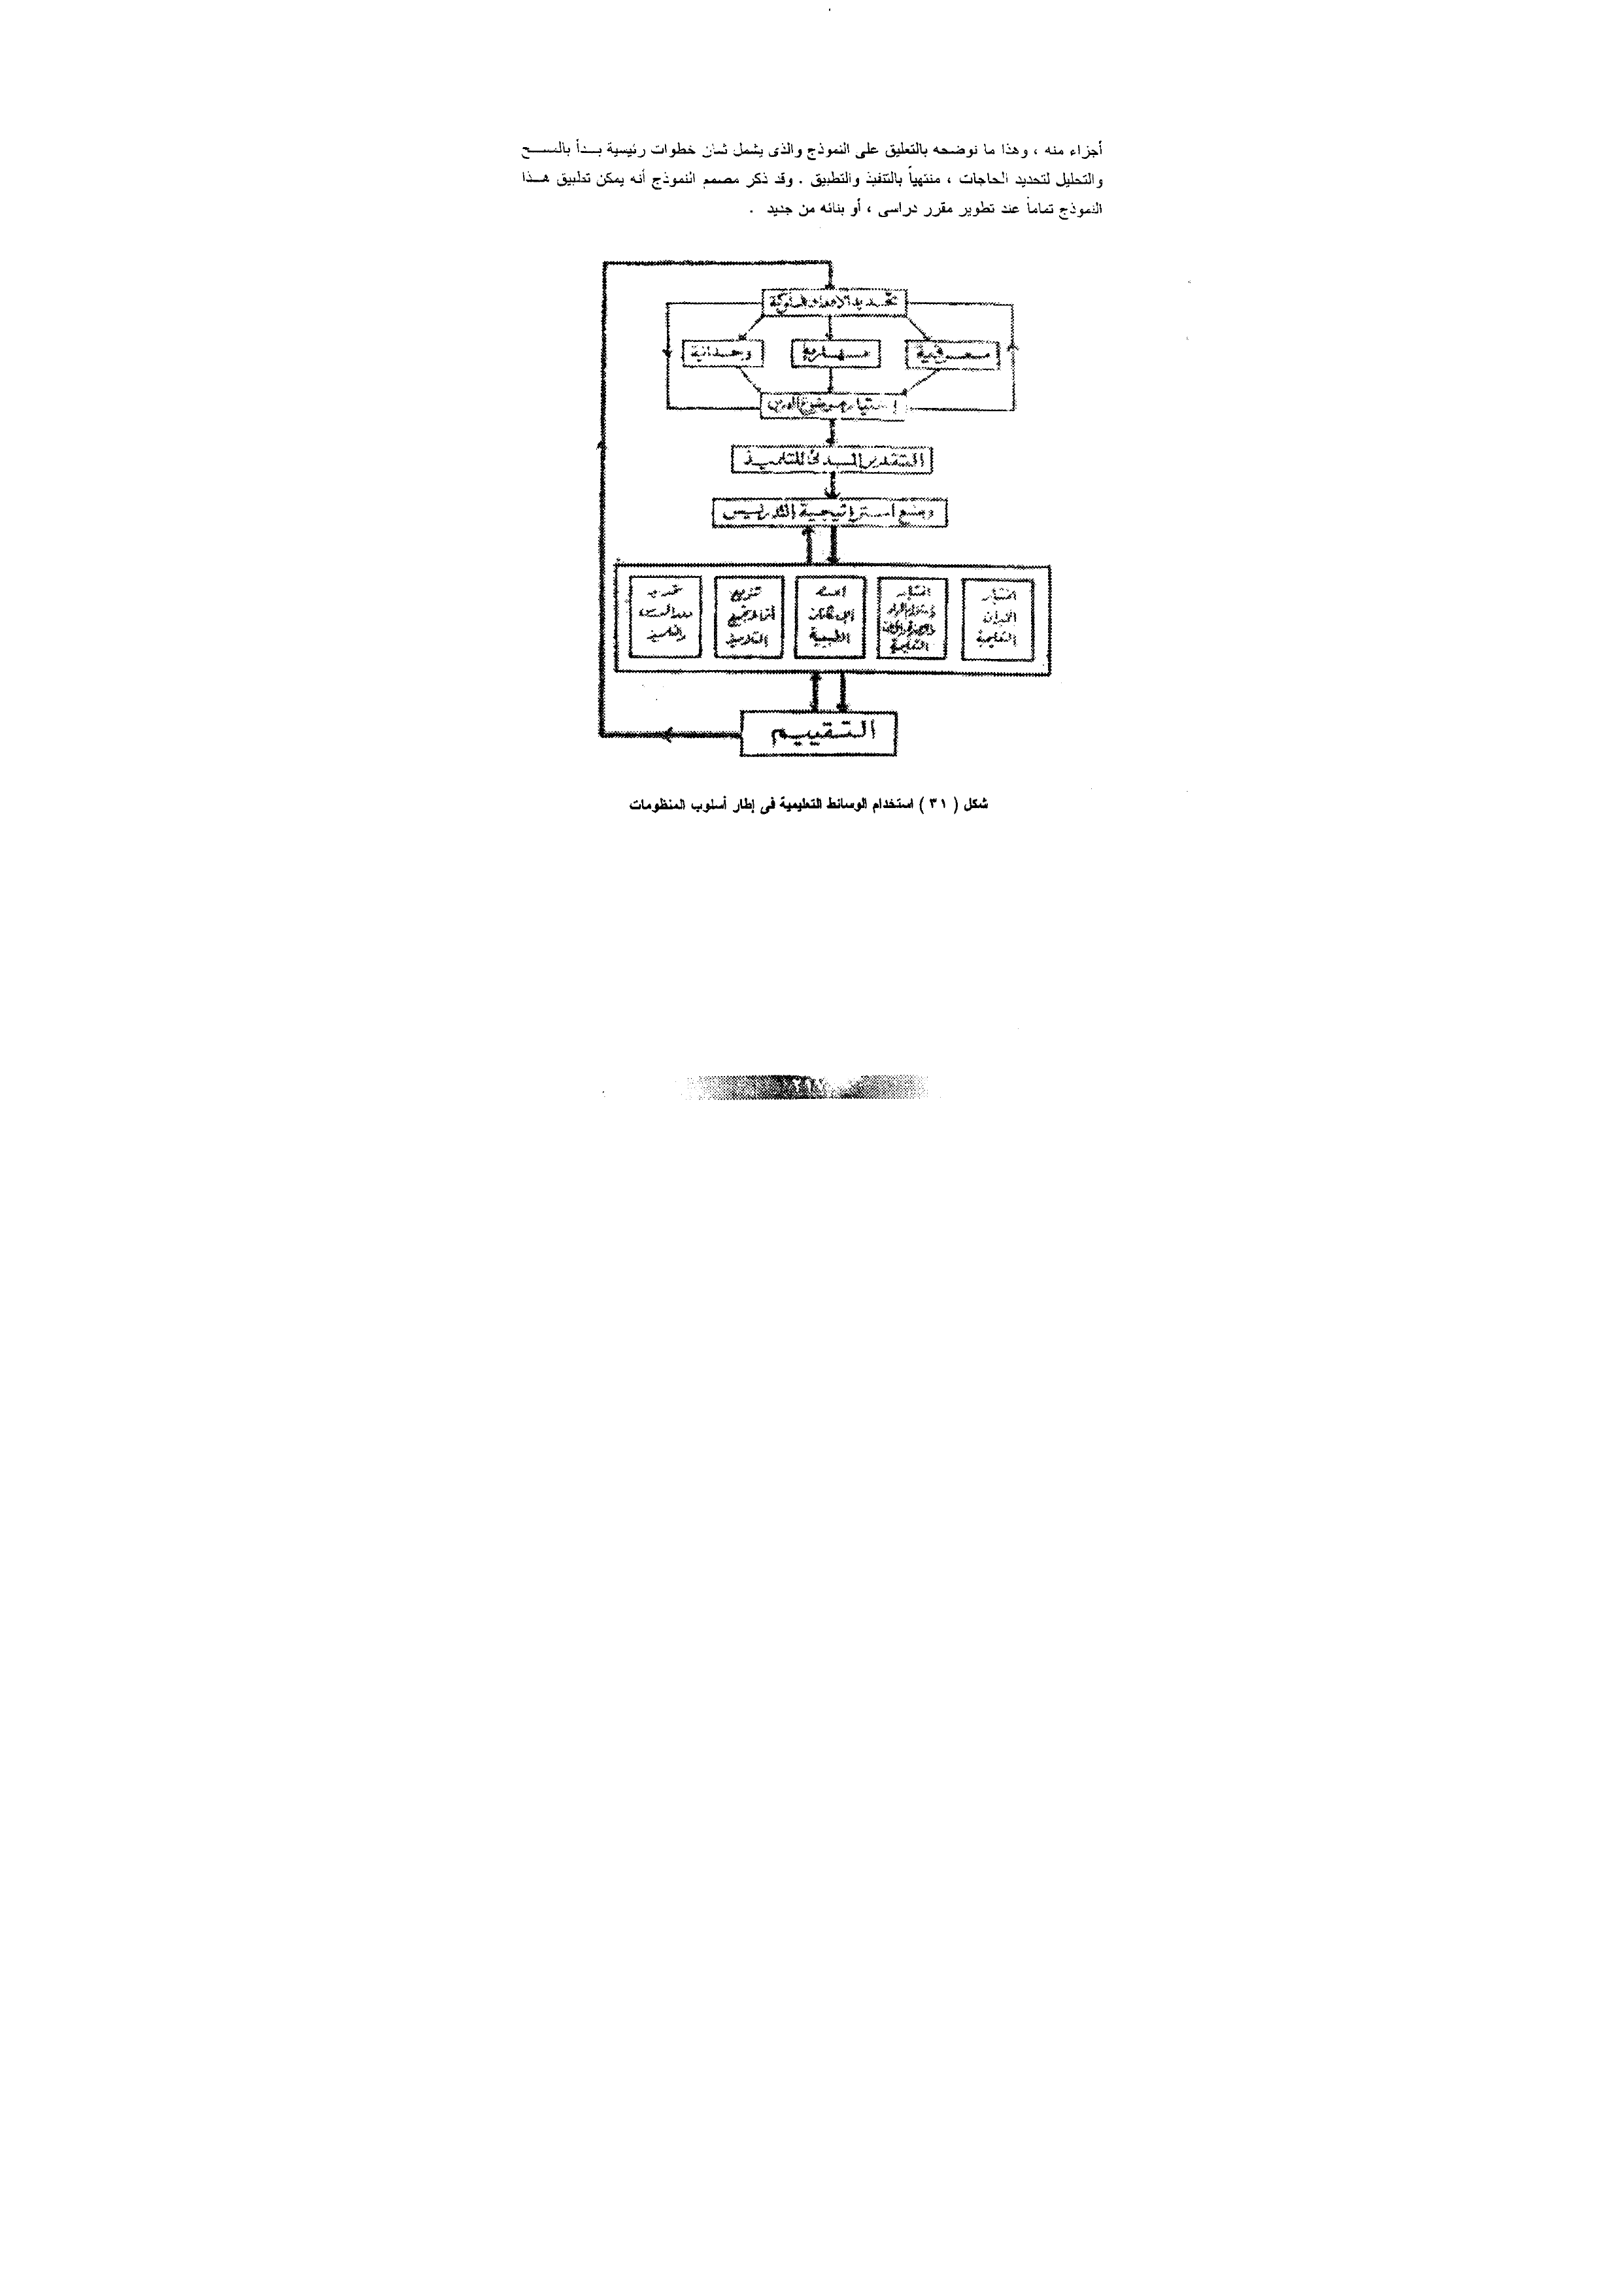 أجزاء منه ، وهذا ما نوضحه بالتعليق على النموذج والذى يشمل ثمان خطوات رئيسية بــدأ بالمســح
والتحليل لتحديد الحاجات ، منتهياً بالتنفيذ والتطبيق . وقد ذكر مصمم النموذج أنه يمكن تطبيق هــذا
النموذج تماماً عند تطوير مقرر دراسى ، أو بنائه من جديد .
تحديد الأهداف السلوكية
معرفية
مهارية
وجدانية
إختيار موضوع الدرس
التقدير المبدئى للتلميذ
وضع استراتيجية التدريس
اختيار
الخبرات
التعليمية
اختيار
التعليمية
الطبيعية
التلاميذ
تحديد
والتلميذ
التقييم
شكل ( ٣١ ) استخدام الوسائط التعليمية فى إطار أسلوب المنظومات